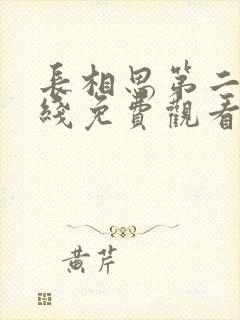 長相思第二
綫免費觀看
黄芹